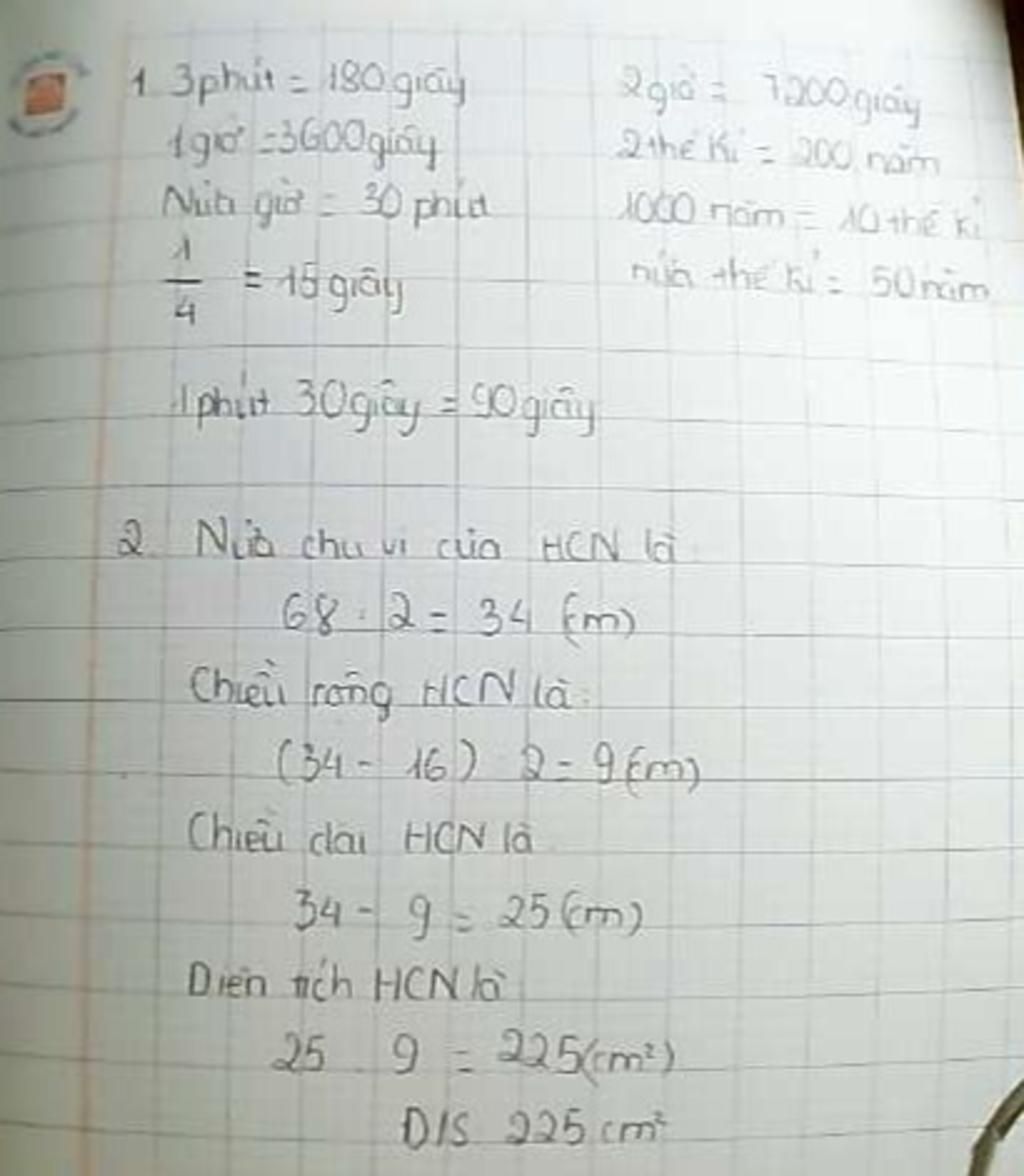 1 3 phút = 180 giây 2 giờ = 7200 giây
1 giờ = 3600 giây 2 thế kỉ = 200 năm
Nửa giờ = 30 phút 1000 năm = 10 thế kỉ
1/4 = 15 giây nửa thế kỉ = 50 năm
1 phút 30 giây = 90 giây
2 Nửa chu vi của HCN là
68 : 2 = 34 (m)
Chiều rộng HCN là:
(34 - 16) 2 = 9 (m)
Chiều dài HCN là
34 - 9 = 25 (m)
Diện tích HCN là
25 . 9 = 225 (cm²)
Đ/S 225 cm²